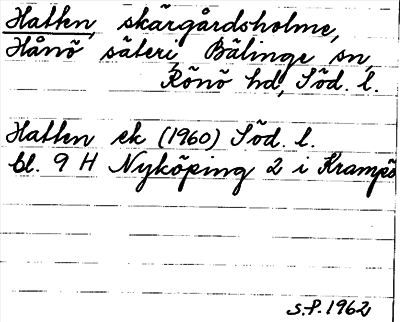 Hatten, skärgårdsholme,
Hånö säteri, Bälinge sn,
Rönö hd, Söd. l.
Hatten ek (1960) Söd. l.
bl. 9 H Nyköping 2 i Krampö
S.P. 1962